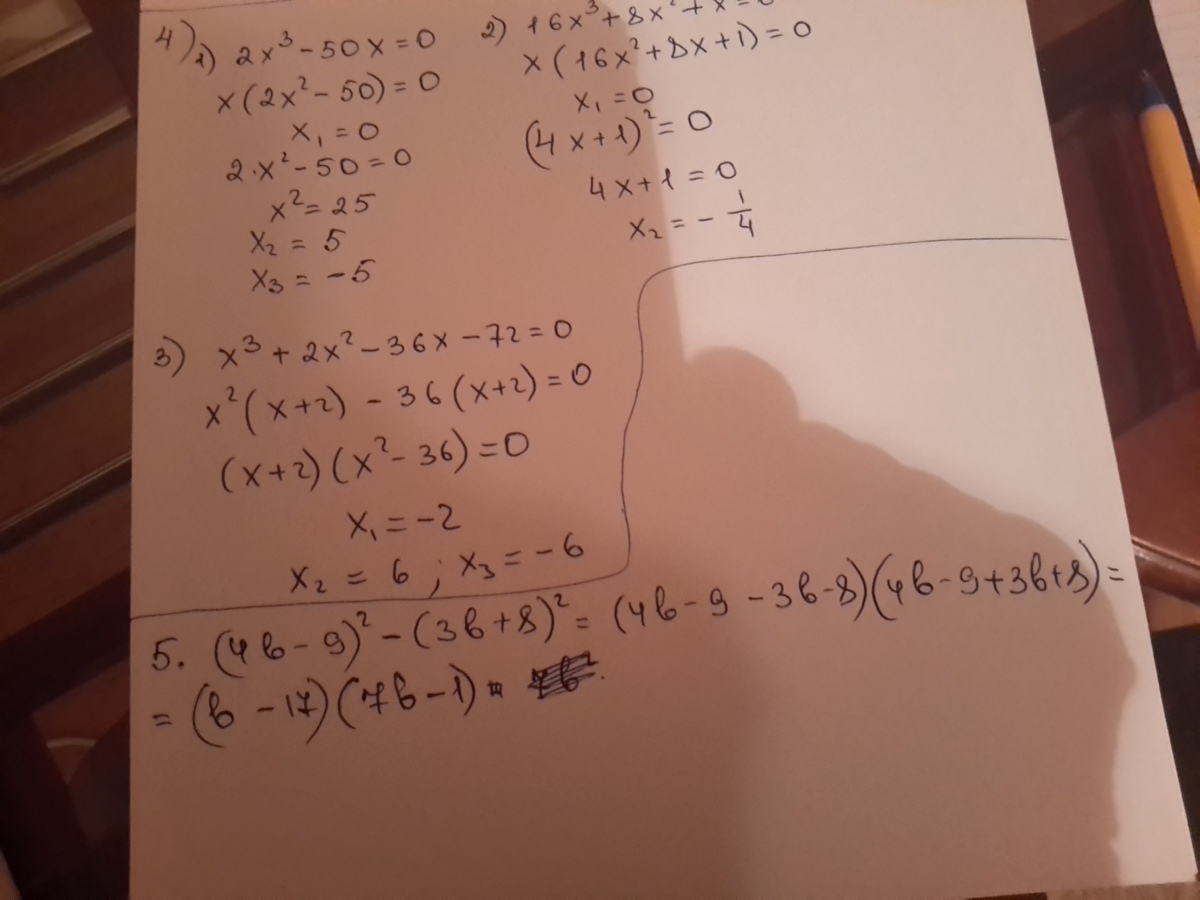 4) 1) 2x³ - 50x = 0
x(2x² - 50) = 0
x₁ = 0
2·x² - 50 = 0
x² = 25
x₂ = 5
x₃ = -5
2) 16x³ + 8x² + x = 0
x(16x² + 8x + 1) = 0
x₁ = 0
(4x + 1)² = 0
4x + 1 = 0
x₂ = - 1/4
3) x³ + 2x² - 36x - 72 = 0
x²(x+2) - 36(x+2) = 0
(x+2)(x² - 36) = 0
x₁ = -2
x₂ = 6 ; x₃ = -6
5. (4b - 9)² - (3b + 8)² = (4b - 9 - 3b - 8)(4b - 9 + 3b + 8) =
= (b - 17)(7b - 1)